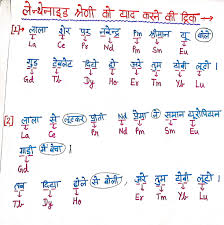 → लेन्थेनाइड श्रेणी को याद करने की ट्रिक →
[1]→ लाला और पुड नरेन्द्र Pm श्रीमान यू बोले
La Ce Pr Nd Pm Sm Eu
गुड टेबलेट दियो हो अरे तुम योबी लूटो।
Gd Tb Dy Ho Er Tm Yb Lu
[2] लाला से लड़कर प्रीती Nd प्रेमा ने समान यूरोपियन
La Ce Pr Nd Pm Sm Eu
गाड़ी में बैठा।
Gd
तब दिया होले से बोली अरे तुम योबी लूटो।
Tb Dy Ho Er Tm Yb Lu